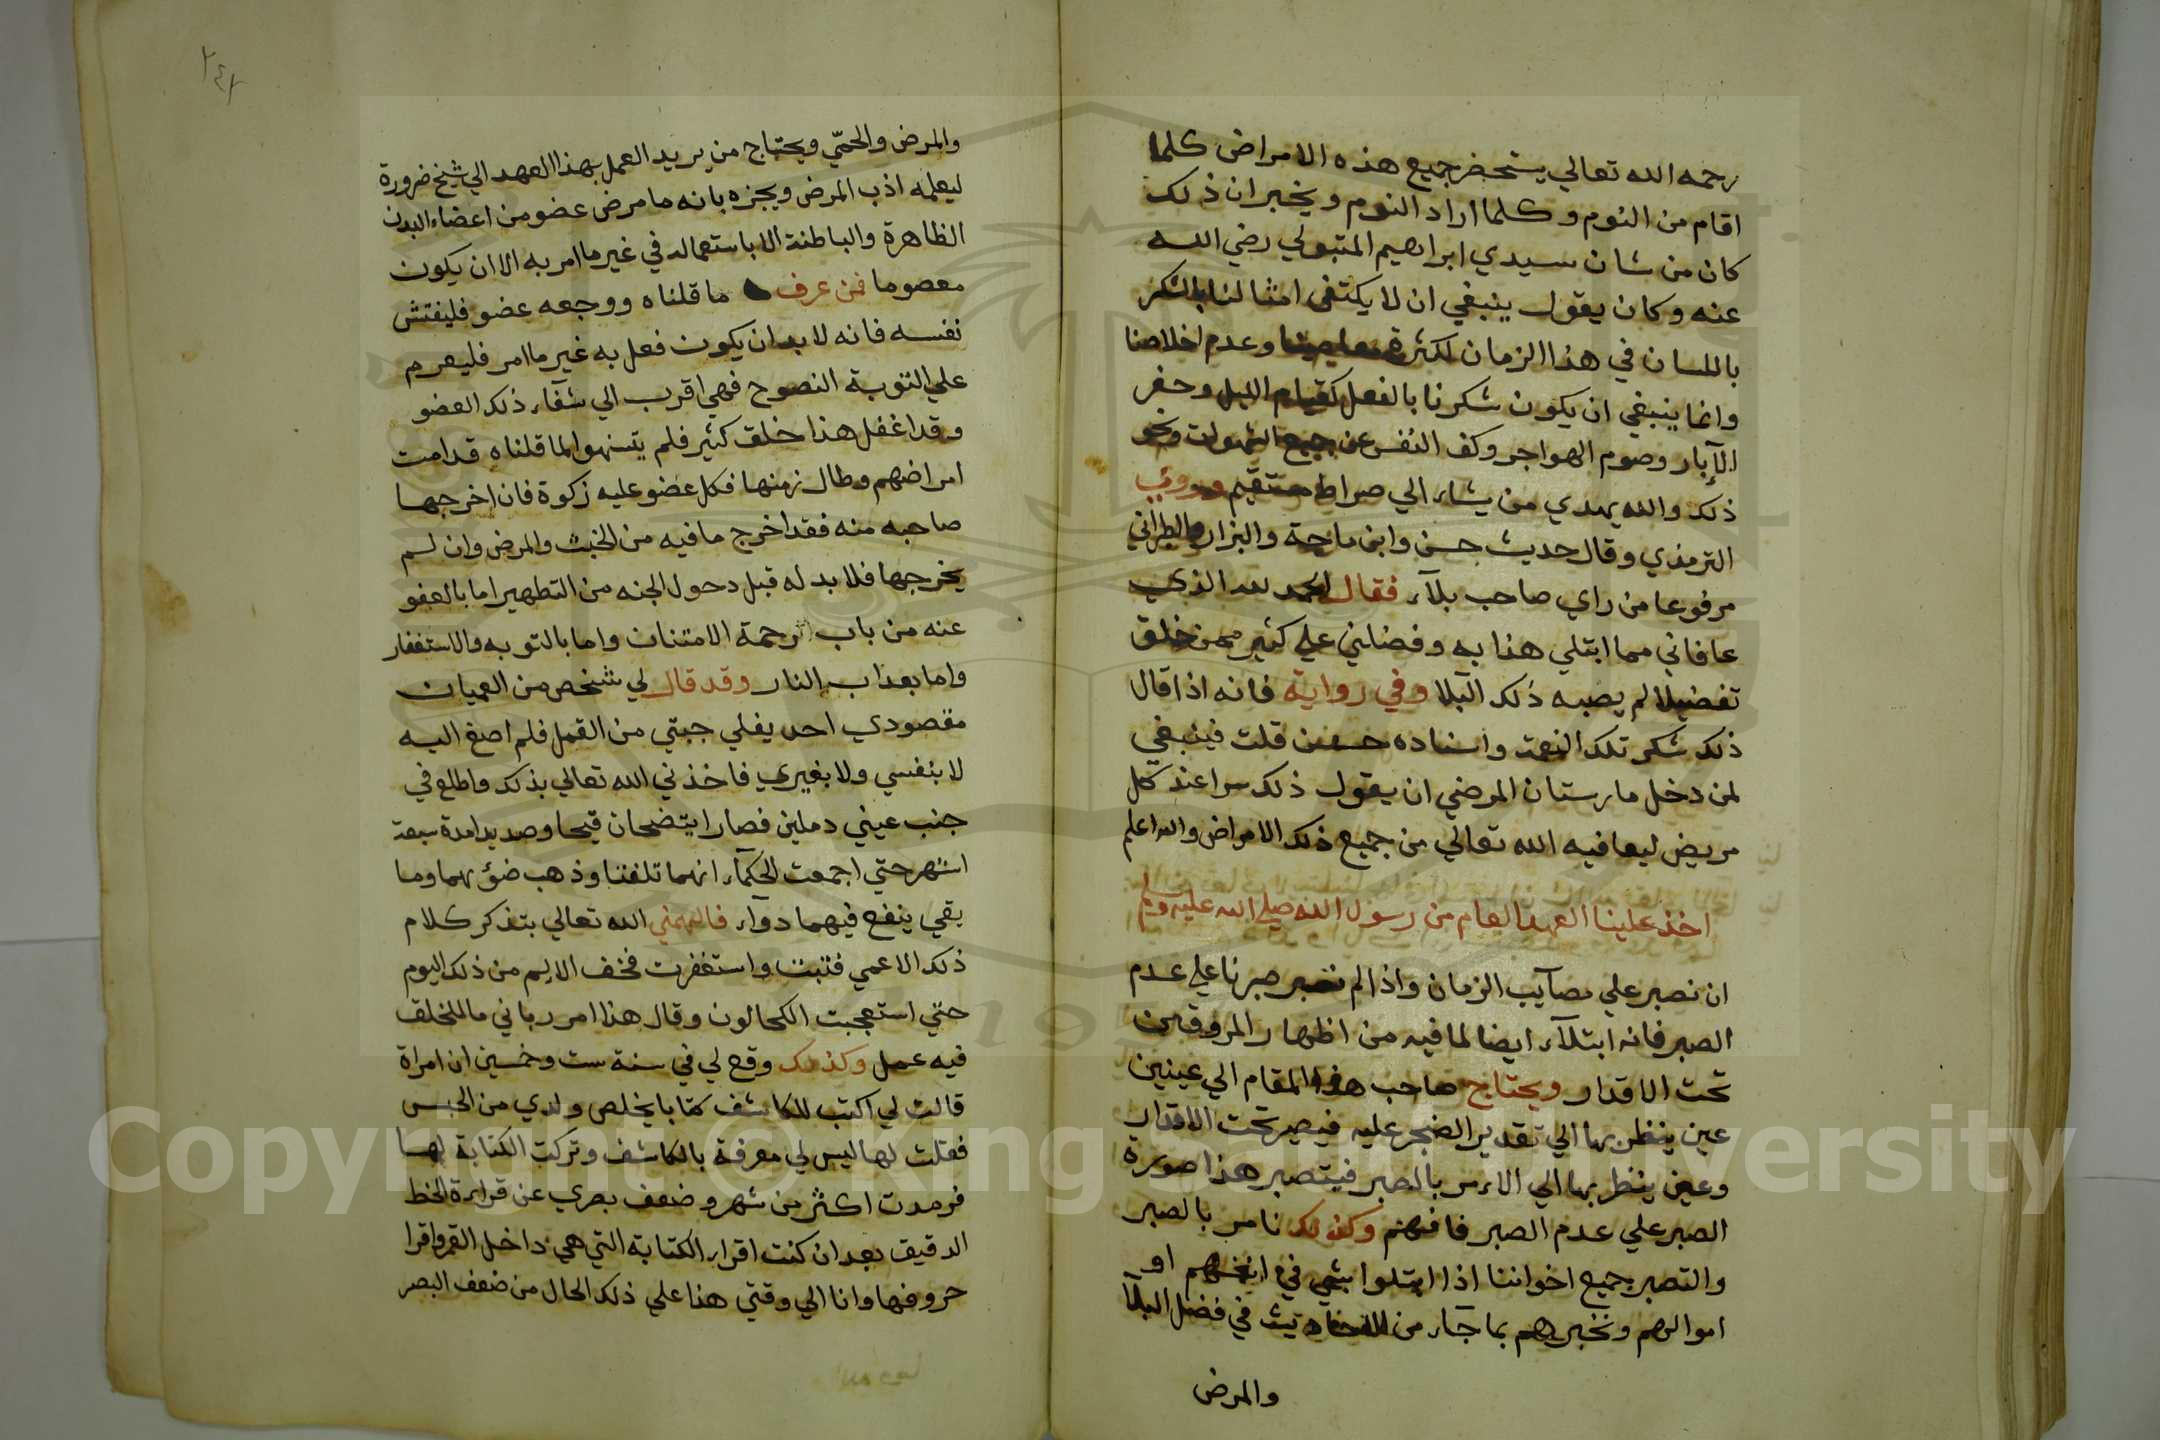 رحمه الله تعالي يستحضر جميع هذه الامراض كلما
اقام من النوم وكلما اراد النوم ويخبر ان ذلك
كان من شان سيدي ابراهيم المتبولي رضي الله
عنه وكان يقول ينبغي ان لا يكتفى امثالنا بالشكر
باللسان في هذا الزمان لكثرة معاصينا وعدم اخلاصنا
وانما ينبغي ان يكون شكرنا بالفعل كقيام الليل وحفر
الآبار وصوم الهواجر وكف النفس عن جميع الشهوات ونحو
ذلك والله يهدي من يشاء الي صراط مستقيم وروي
الترمذي وقال حديث حسن وابن ماجة والبزار والطبراني
مرفوعا من راي صاحب بلآء فقال الحمد لله الذي
عافاني مما ابتلي هذا به وفضلني علي كثير ممن خلق
تفضيلا لم يصبه ذلك البلا وفي رواية فانه اذا قال
ذلك شكر تلك النعمة واسناده حسن قلت فينبغي
لمن دخل مارستان المرضي ان يقول ذلك سرا عند كل
مريض ليعافيه الله تعالي من جميع ذلك الامراض والله اعلم
اخذ علينا العهد العام من رسول الله صلي الله عليه وسلم
ان نصبر علي مصآيب الزمان واذا لم نصبر صبرنا علي عدم
الصبر فانه ابتلآء ايضا لما فيه من اظهار المروقين
تحت الاقدار ويحتاج صاحب هذا المقام الي عينين
عين ينظر بها الي تقدير الضجر عليه فيصير تحت الاقدار
وعين ينظر بها الي الامر بالصبر فيتصبر هذا صورة
الصبر علي عدم الصبر فافهم وكذلك نامر بالصبر
والتصبر جميع اخواننا اذا ابتلوا بشي في انفسهم او
اموالهم ونخبرهم بما جآء من الاحاديث في فضل البلآ
والمرض
والمرض والحمّي ويحتاج من يريد العمل بهذا العهد الي شيخ ضرورة
ليعلمه اذب المرض ويجزه بانه ما مرض عضو من اعضاء البدن
الظاهرة والباطنة الا باستعماله في غير ما امر به الا ان يكون
معصوما فمن عرف ما قلناه ووجعه عضو فليفتش
نفسه فانه لا بد ان يكون فعل به غير ما امر فليعرم
علي التوبة النصوح فهي اقرب الي شفآء ذلك العضو
وقد اغفل هذا خلق كثير فلم يتنبهوا لما قلناه قدامت
امراضهم وطال زمنها فكل عضو عليه زكوة فان اخرجها
صاحبه منه فقد اخرج ما فيه من الخبث والمرض وان لم
يخرجها فلا بد له قبل دحول الجنه من التطهير اما بالعفو
عنه من باب الرحمة الامتنان واما بالتوبه والاستغفار
واما بعذاب النار وقد قال لي شخص من العميان
مقصودي احد يفلي جبتي من القمل فلم اصغ اليه
لا بنفسي ولا بغيري فاخذني الله تعالي بذلك واطلع في
جنب عيني دملين فصارا يتضحان قيحا وصديدا مدة سبعة
اشهر حتي اجمعت الحكمآء انهما تلفتا وذهب ضؤ بهما وما
بقي ينفع فيهما دوآء فالهمني الله تعالي بتذكر كلام
ذلك الاعمي فتبت واستغفرت فخف الاليم من ذلك اليوم
حتي استعجبت الكحالون وقال هذا امر رباني ما للخلق
فيه عمل وكذلك وقع لي في سنة ست وخمسين ان امراة
قالت لي اكتب للكاشف كتابا يخلص ولدي من الحبس
فقلت لها ليس لي معرفة بالكاشف وتركت الكتابة لها
فرمدت اكثر من شهر وضعف بصري عن قراءة الخط
الدقيق بعد ان كنت اقرا الكتابة التي هي داخل القمر واقرا
حروفها وانا الي وقتي هذا علي ذلك الحال من ضعف البصر
Copyright © King Saud University